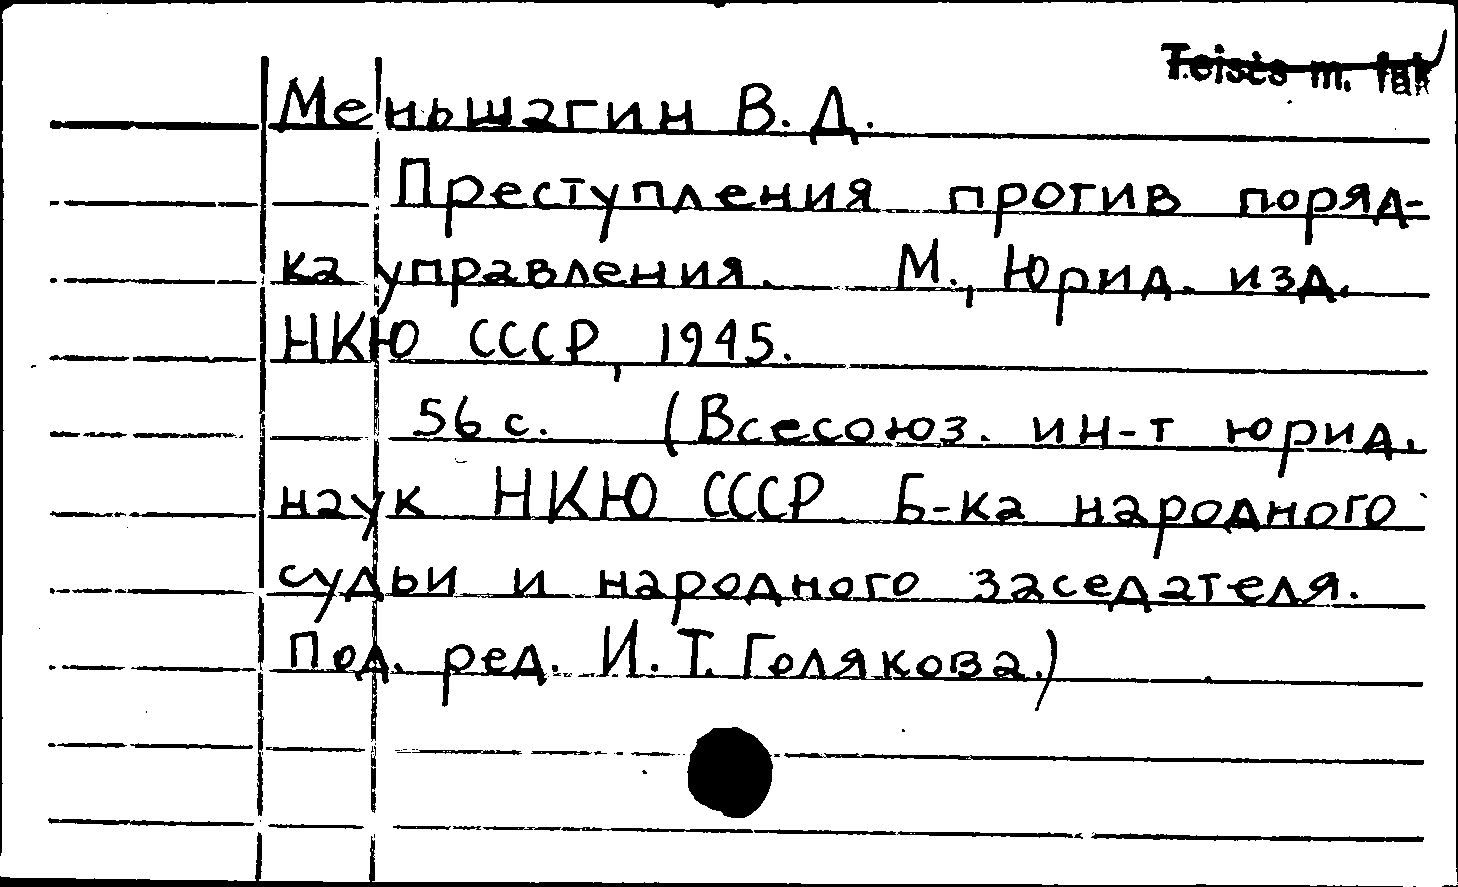 Teisės m. fak
Меньшагин В. Д.
Преступления против поряд-
ка управления. М., Юрид. изд.
НКЮ СССР, 1945.
56 с. (Всесоюз. ин-т юрид.
наук НКЮ СССР. Б-ка народного
судьи и народного заседателя.
Под. ред. И. Т. Голякова.)